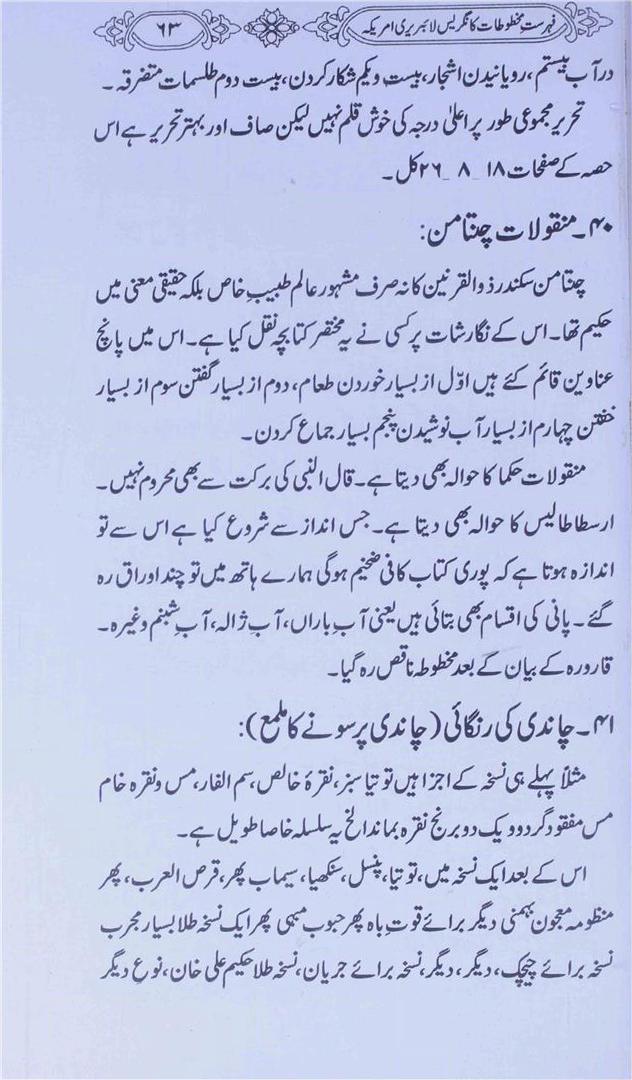 فہرستِ مخطوطات کانگریس لائبریری امریکہ
۶۳
در آب بیستم، رویانیدن اشجار، بیست ویکم شکار کردن، بیست دوم طلسمات متضرقہ۔
تحریر مجموعی طور پر اعلیٰ درجہ کی خوش قلم نہیں لیکن صاف اور بہتر تحریر ہے اس
حصہ کے صفحات ۱۸_۸_۲۶ کل۔
۴۰۔ منقولات چنتامن:
چنتامن سکندر ذوالقرنین کا نہ صرف مشہور عالم طبیبِ خاص بلکہ حقیقی معنی میں
حکیم تھا۔ اس کے نگارشات پر کسی نے یہ مختصر کتابچہ نقل کیا ہے۔ اس میں پانچ
عناوین قائم کئے ہیں اوّل از بسیار خوردن طعام، دوم از بسیار گفتن سوم از بسیار
خفتن چہارم از بسیار آب نوشیدن پنجم بسیار جماع کردن۔
منقولات حکما کا حوالہ بھی دیتا ہے۔ قال النبی کی برکت سے بھی محروم نہیں۔
ارسطاطالیس کا حوالہ بھی دیتا ہے۔ جس انداز سے شروع کیا ہے اس سے تو
اندازہ ہوتا ہے کہ پوری کتاب کافی ضخیم ہوگی ہمارے ہاتھ میں تو چند اوراق رہ
گئے۔ پانی کی اقسام بھی بتائی ہیں یعنی آبِ باراں، آبِ ژالہ، آبِ شبنم وغیرہ۔
قارورہ کے بیان کے بعد مخطوطہ ناقص رہ گیا۔
۴۱۔ چاندی کی رنگائی (چاندی پر سونے کا ملمع):
مثلاً پہلے ہی نسخہ کے اجزا ہیں توتیا سبز، نقرۂ خالص، سم الفار، مس ونقرہ خام
مس مفقود گردد و یک دو برنج نقرہ بماند الخ یہ سلسلہ خاصا طویل ہے۔
اس کے بعد ایک نسخہ میں، توتیا، پنسل، سنکھیا، سیماب پھر، قرص العرب، پھر
منظومہ معجون بہمنی دیگر برائے قوتِ باہ پھر حبوب مبہی پھر ایک نسخہ طلا بسیار مجرب
نسخہ برائے چیچک، دیگر، دیگر، نسخہ برائے جریان، نسخہ طلا حکیم علی خان، نوعِ دیگر